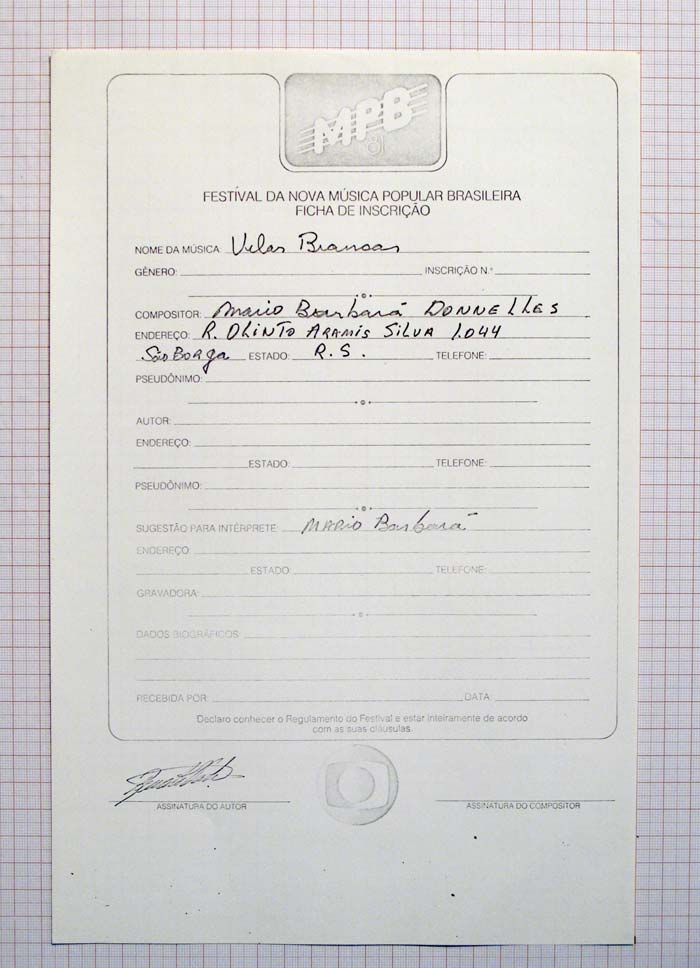 MPB 81
FESTIVAL DA NOVA MÚSICA POPULAR BRASILEIRA
FICHA DE INSCRIÇÃO
NOME DA MÚSICA: Velas Brancas
GÊNERO: INSCRIÇÃO N.º
COMPOSITOR: Mario Barbará DONNELLES
ENDEREÇO: R. OLINTO ARAMIS SILVA 1.044
São BORGA ESTADO: R.S. TELEFONE:
PSEUDÔNIMO:
AUTOR:
ENDEREÇO:
ESTADO: TELEFONE:
PSEUDÔNIMO:
SUGESTÃO PARA INTÉRPRETE: MARIO Barbará
ENDEREÇO:
ESTADO: TELEFONE:
GRAVADORA:
DADOS BIOGRÁFICOS:
RECEBIDA POR: DATA:
Declaro conhecer o Regulamento do Festival e estar inteiramente de acordo
com as suas cláusulas.
ASSINATURA DO AUTOR ASSINATURA DO COMPOSITOR